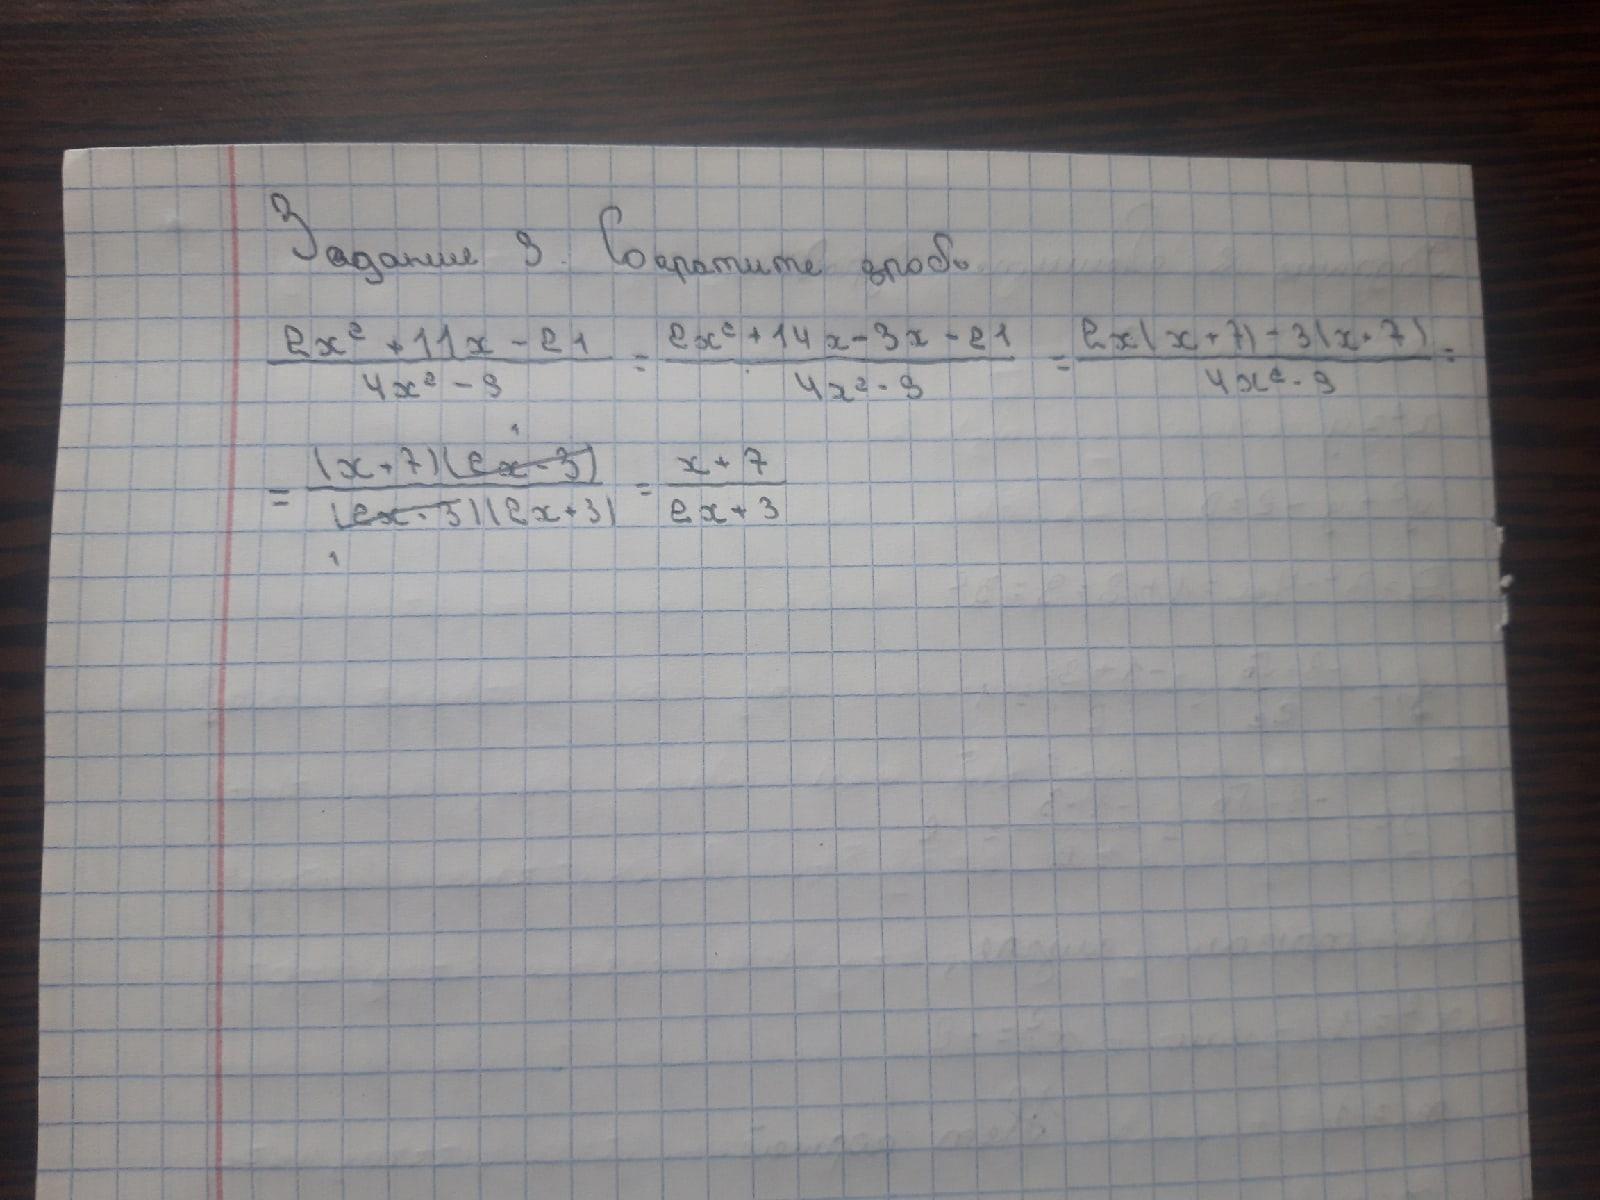 Задание 9. Сократите дробь
(2x² + 11x - 21)/(4x² - 9) = (2x² + 14x - 3x - 21)/(4x² - 9) = (2x(x + 7) - 3(x + 7))/(4x² - 9) =
= ((x + 7)(2x - 3))/((2x - 3)(2x + 3)) = (x + 7)/(2x + 3)